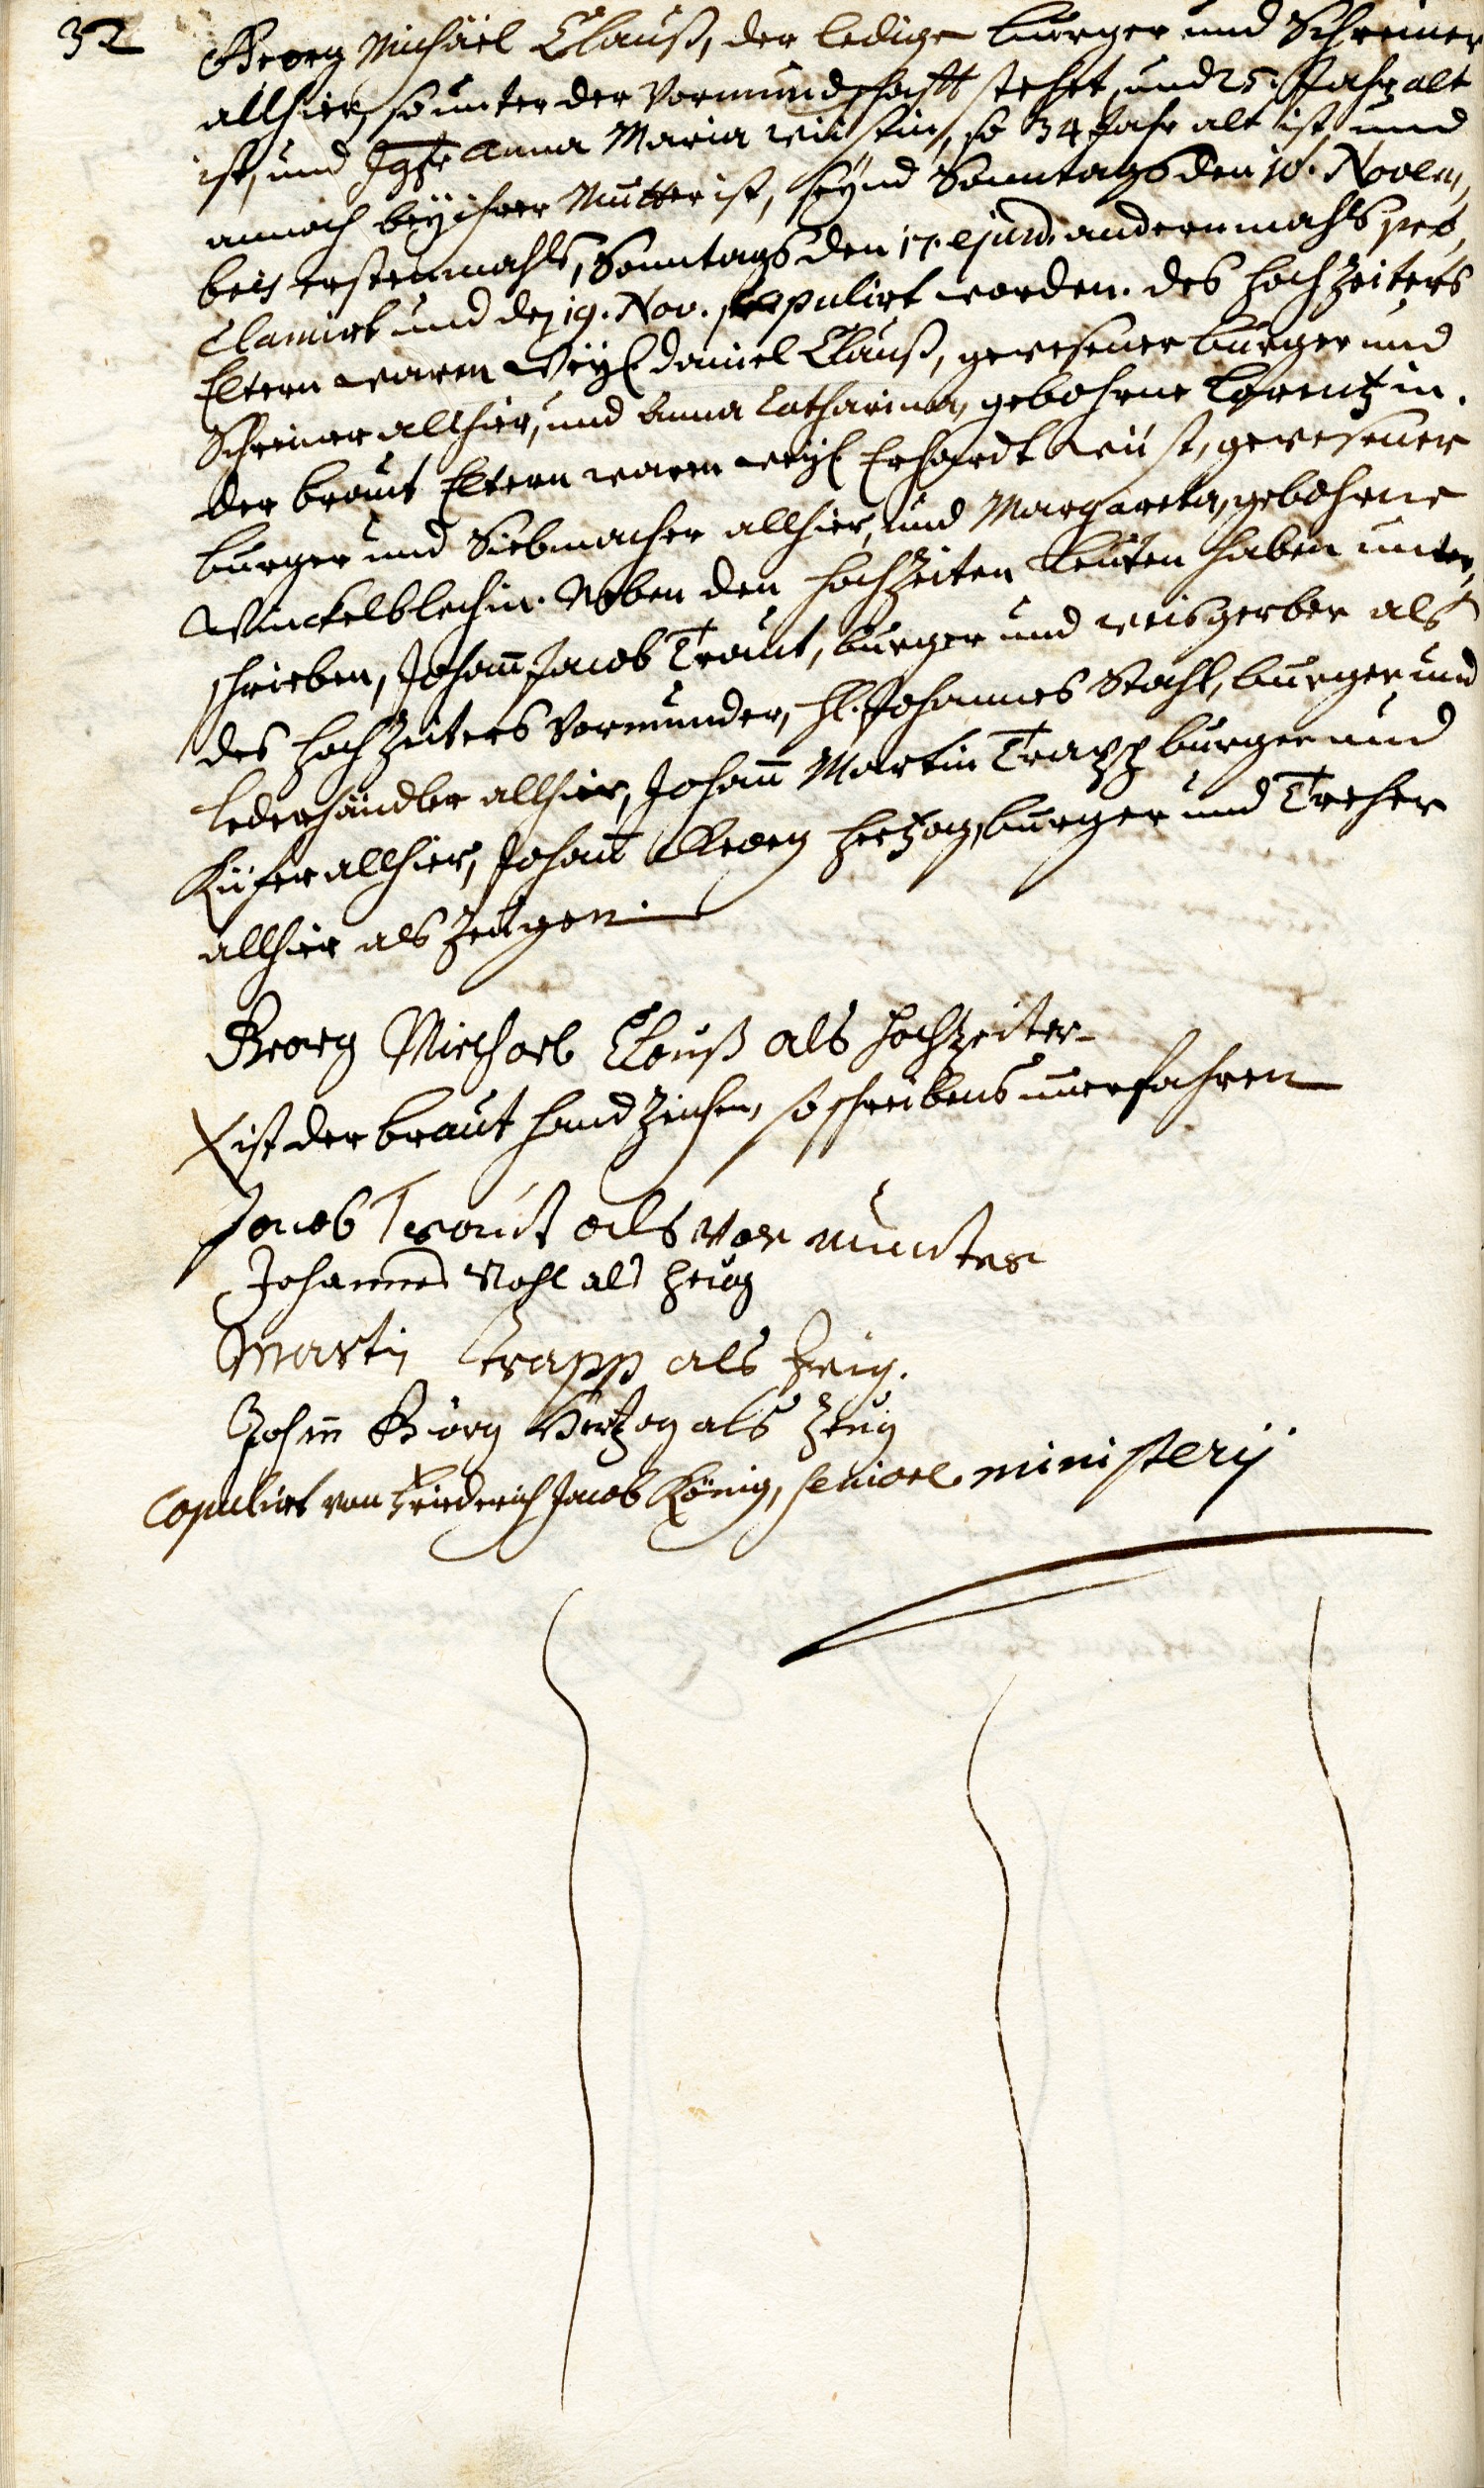 32
Georg Michäel Clauß, der ledige burger und Schreiner
allhier, so unter der Vormundschafft stehet, und 25. Jahr alt
ist, und Jgfr Anna Maria Wüstin, so 34 Jahr alt ist, und
annoch bey ihrer Mutter ist, seynd Sonntags den 10. Novem,
bris erstenmahls, Sonntags den 17. ejusd. andernmahls pro,
clamirt und den 19. Nov. copulirt worden. des hochzeiters
Eltern waren Weyl Daniel Clauß, gewesener burger und
Schreiner allhier, und Anna Catharina, gebohrne Lorentzin.
der braut Eltern waren weyl Erhardt Wüst, gewesener
burger und Siebmacher allhier, und Margareta, gebohrne
Winckelblechin. Neben den hochzeiten Leuten haben unter,
schrieben, Johann Jacob Traut, burger und weisgerber als
des hochzeiters Vormunder, H. Johannes Stahl, burger und
lederhändler allhier, Johann Martin Trapp burger und
Küfer allhier, Johann Georg Hertzog, burger und Treher
allhier als Zeugen.
Georg Miechael Clauß als hochzeiter
X ist der braut handzeichen, so schreibens unerfahren
Jacob Traut als vor munter
Johannes Stahl als Zeug
Martin Trapp als Zeig.
Johann Georg Hertzog als Zeug
Copulirt von Friederich Jacob König, seniore ministerij